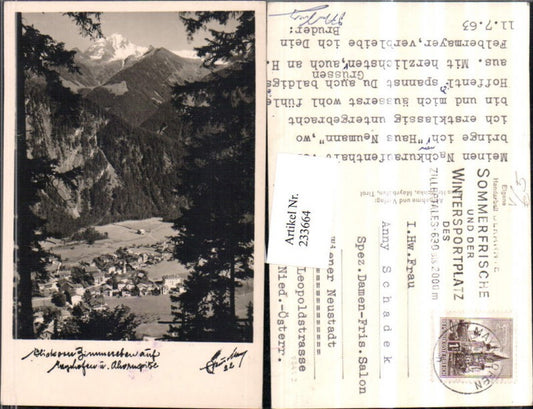 Blick von Zimmereben auf
Mayrhofen u. Ahornspitze
11.7.63
Meinen Nachkuraufenthalt ver
bringe ich "Haus Neumann", wo
ich erstklassig untergebracht
bin und mich äusserst wohl fühle
Hoffentl. spannst Du auch baldigs
aus. Mit herzlichsten, auch an H.
Felbermayer, verbleibe ich Dein
Grüssen
Bruder:
Artikel Nr.
233664
Mayrhofen, Tirol
SOMMERFRISCHE
UND DER
WINTERSPORTPLATZ
DES
ZILLERTALES·630 bis 2000 m
I.Hw.Frau
Anny Schadek
Spez.Damen-Fris.Salon
iener Neustadt
Leopoldstrasse
Nied.-Österr.